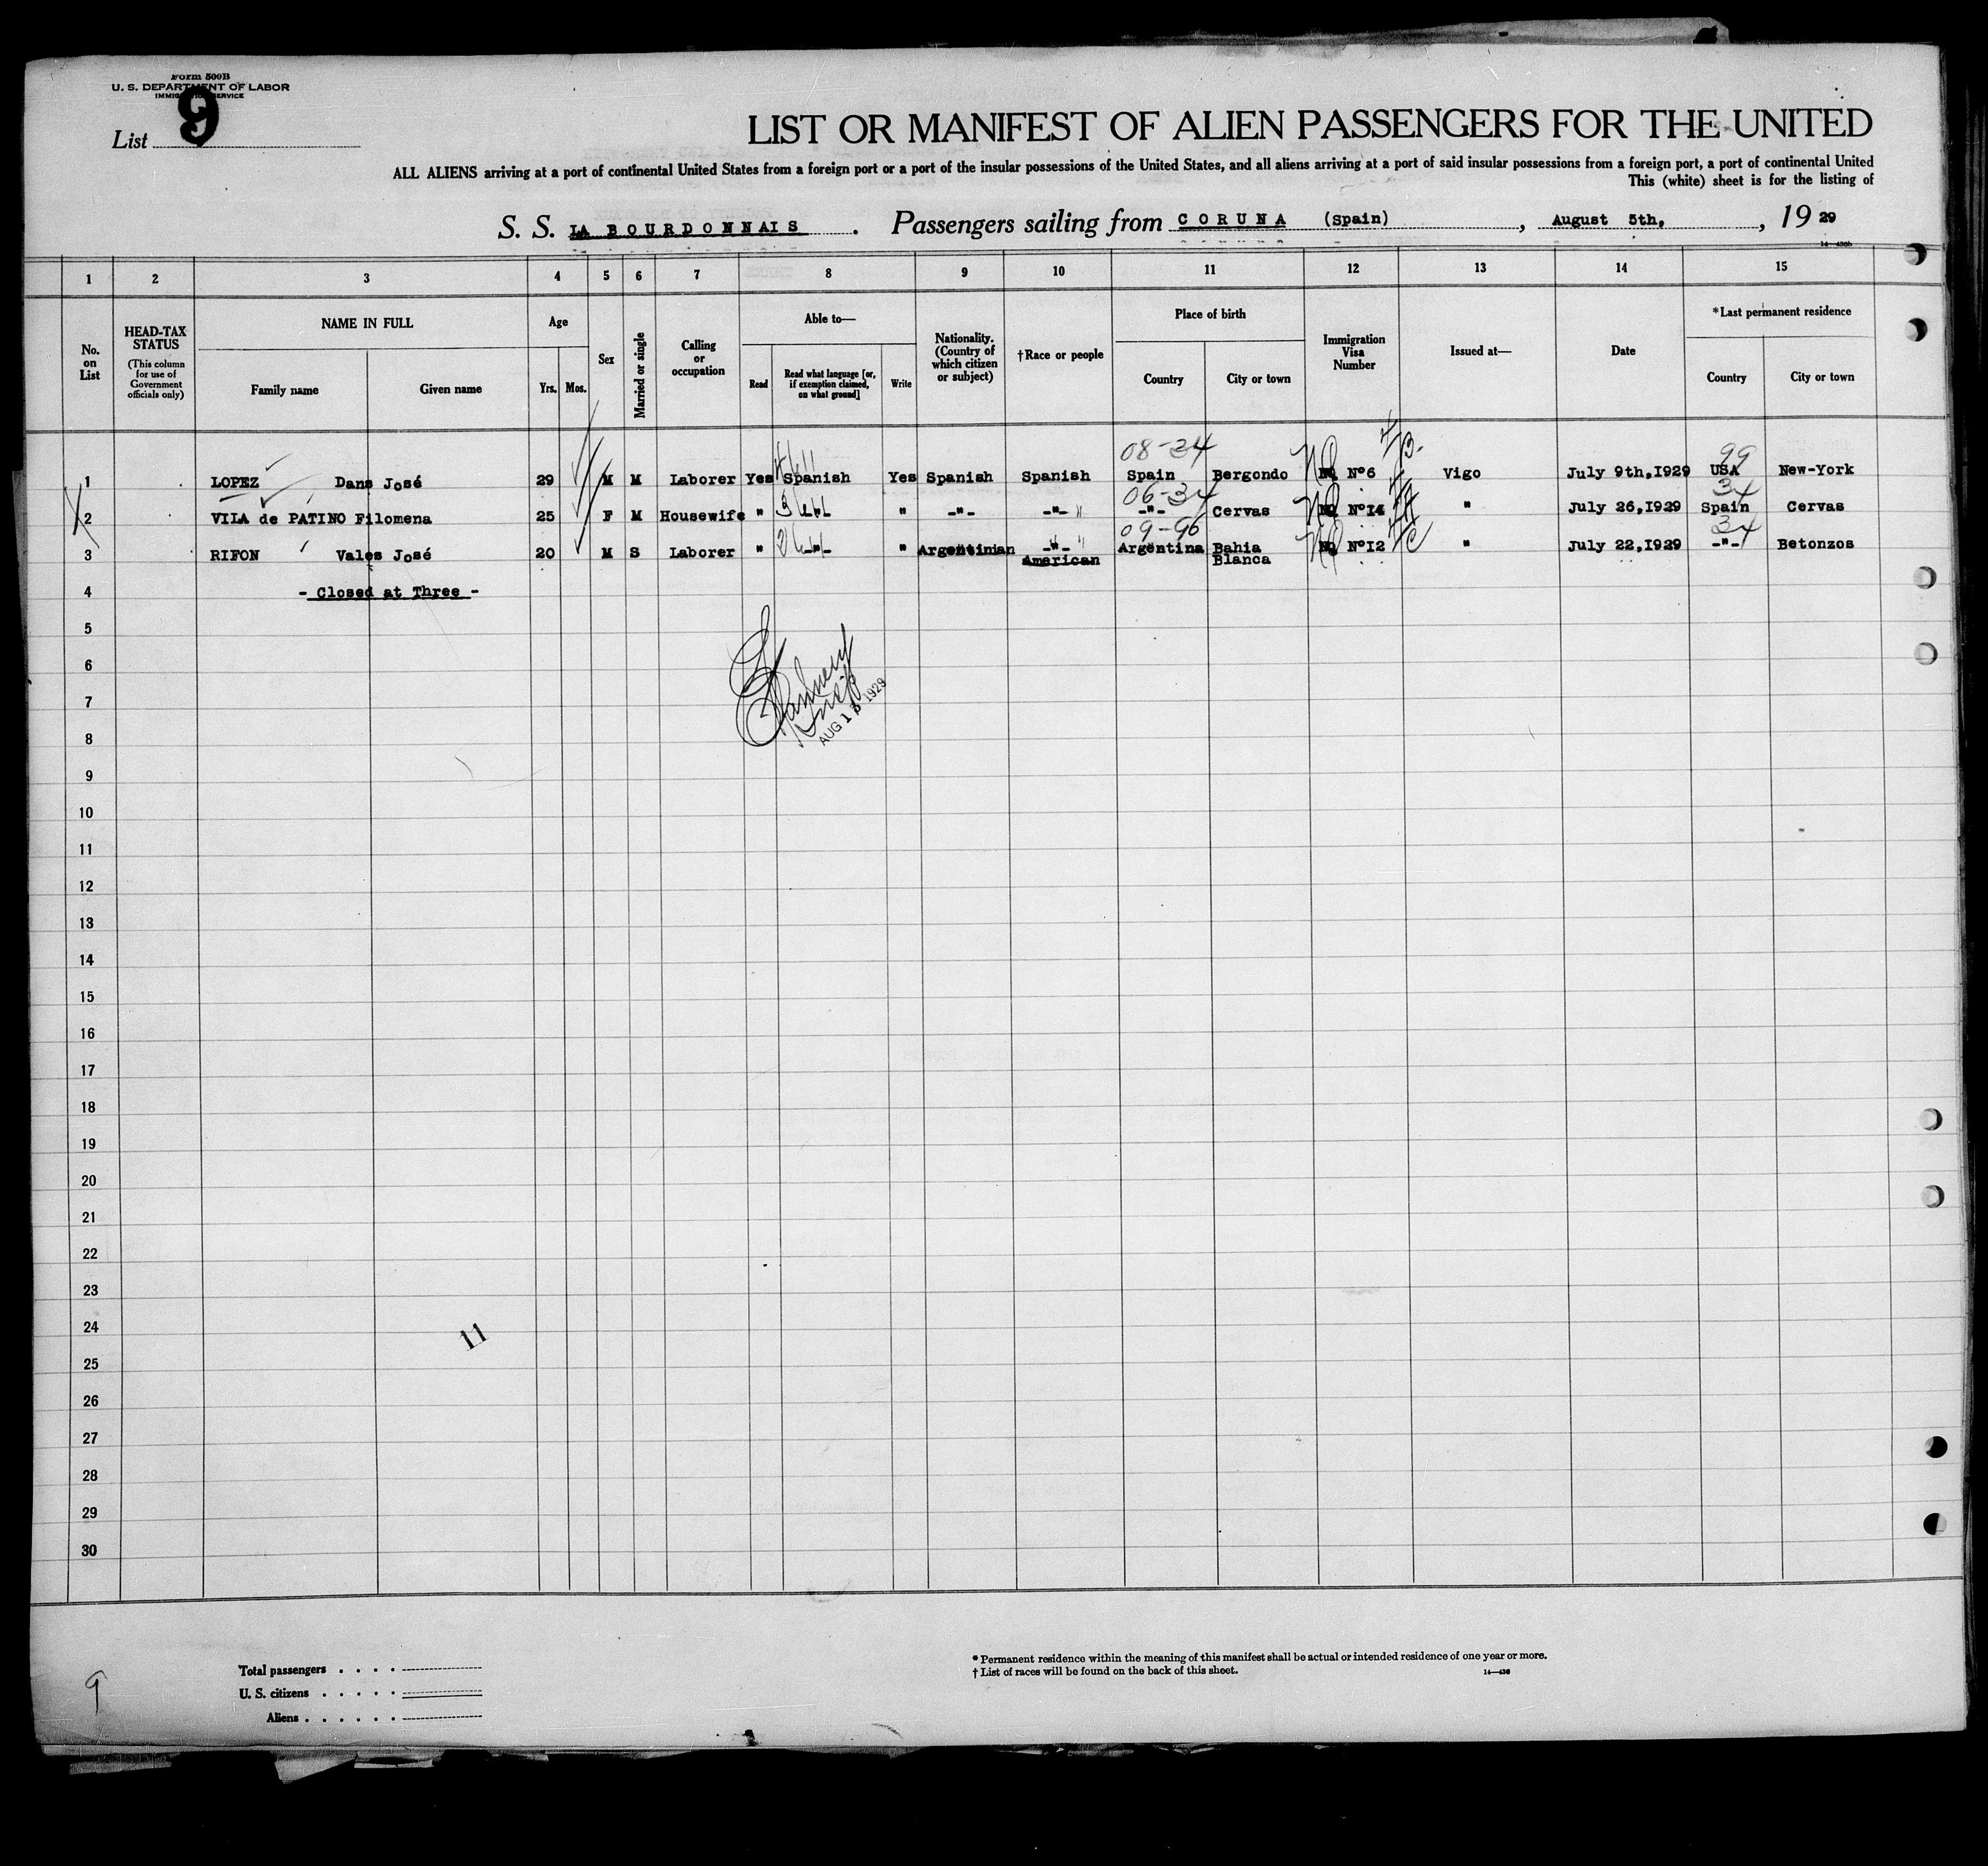 Form 500B
U. S. DEPARTMENT OF LABOR
IMMIGRATION SERVICE
List 9
LIST OR MANIFEST OF ALIEN PASSENGERS FOR THE UNITED
ALL ALIENS arriving at a port of continental United States from a foreign port or a port of the insular possessions of the United States, and all aliens arriving at a port of said insular possessions from a foreign port, a port of continental United
This (white) sheet is for the listing of
S. S. LA BOURDONNAIS . Passengers sailing from CORUNA (Spain) , August 5th, , 19 29
14—430b
1 2 3 4 5 6 7 8 9 10 11 12 13 14 15
No. on List
HEAD-TAX STATUS
(This column for use of Government officials only)
NAME IN FULL
Family name Given name
Age
Yrs. Mos.
Sex
Married or single
Calling or occupation
Able to—
Read
Read what language [or, if exemption claimed, on what ground]
Write
Nationality. (Country of which citizen or subject)
†Race or people
Place of birth
Country City or town
Immigration Visa Number
Issued at—
Date
*Last permanent residence
Country City or town
08-24 99
1 LOPEZ Dans José 29 M M Laborer Yes Spanish Yes Spanish Spanish Spain Bergondo NQ Nº6 Vigo July 9th,1929 USA New-York
06-34 34
2 VILA de PATINO Filomena 25 F M Housewife " -"- " -"- -"- -"- Cervas NQ Nº14 " July 26,1929 Spain Cervas
09-96 34
3 RIFON Vales José 20 M S Laborer " -"- " Argentinian -"- Argentina Bahia NQ Nº12 " July 22,1929 -"- Betonzos
American Blanca
4 - Closed at Three -
5
6
7
AUG 13 1929
8
9
10
11
12
13
14
15
16
17
18
19
20
21
22
23
24
11
25
26
27
28
29
30
9
Total passengers . . . .
U. S. citizens . . . . .
Aliens . . . . . .
* Permanent residence within the meaning of this manifest shall be actual or intended residence of one year or more.
† List of races will be found on the back of this sheet. 14—430